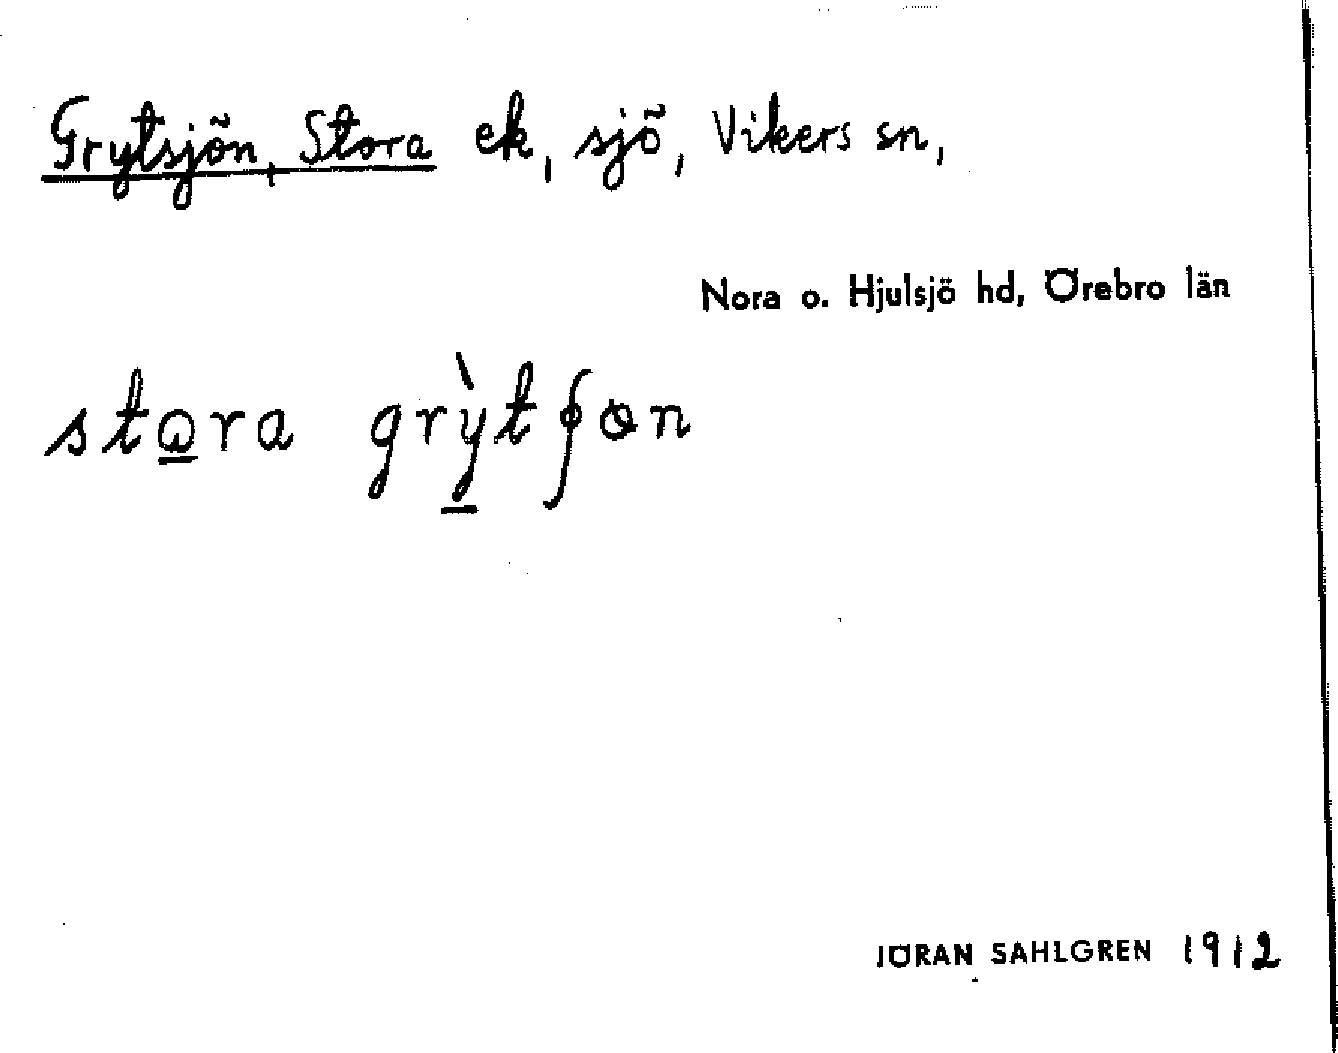 Grytsjön, Stora ek, sjö, Vikers sn,
Nora o. Hjulsjö hd, Örebro län
stora grỳtʃɵn
JÖRAN SAHLGREN 1912